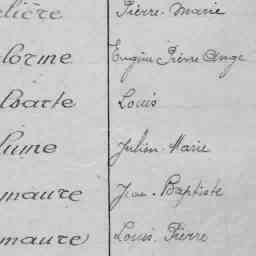 lière Pierre-Marie
lorme Eugène Pierre Ange
lsarte Louis
lume Julien-Marie
maure Jean-Baptiste
maure Louis-Pierre